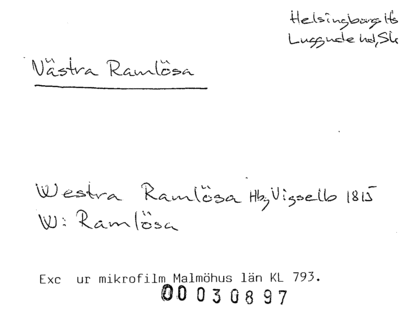 Helsingborgs
Luggude hd, Sk
Västra Ramlösa
Westra Ramlösa Hbg Vigselb 1815
W: Ramlösa
Exc ur mikrofilm Malmöhus län KL 793.
00030897